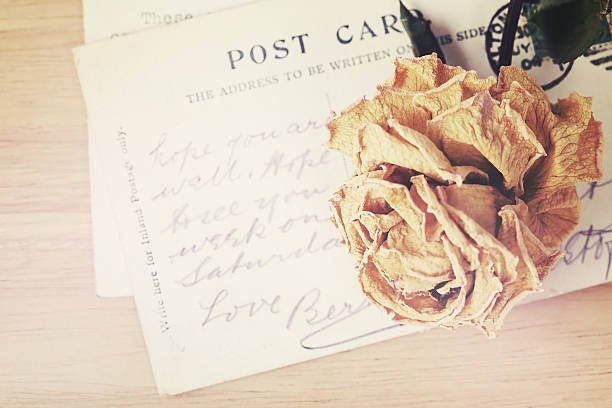 These
POST CARD.
THE ADDRESS TO BE WRITTEN ON THIS SIDE
30
UY
04
Write here for Inland Postage only.
hope you are
well. Hope
to see you
week on
Saturday
Love Ber